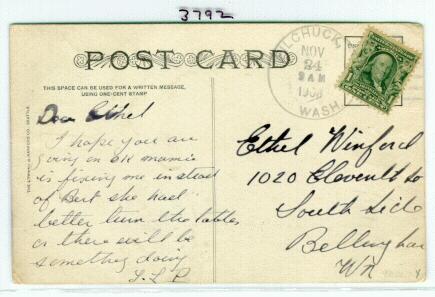 3792
POST CARD
THIS SPACE CAN BE USED FOR A WRITTEN MESSAGE,
USING ONE-CENT STAMP
PILCHUCK,
NOV
24
9 AM
WASH.
Dear Ethel
I hope you are
going on OK mamie
is fixing me instead
of Bert she had
better turn the tables
or there will be
something doing
Ethel Winford
1020 Eleventh St
South Side
Bellingham
Wn